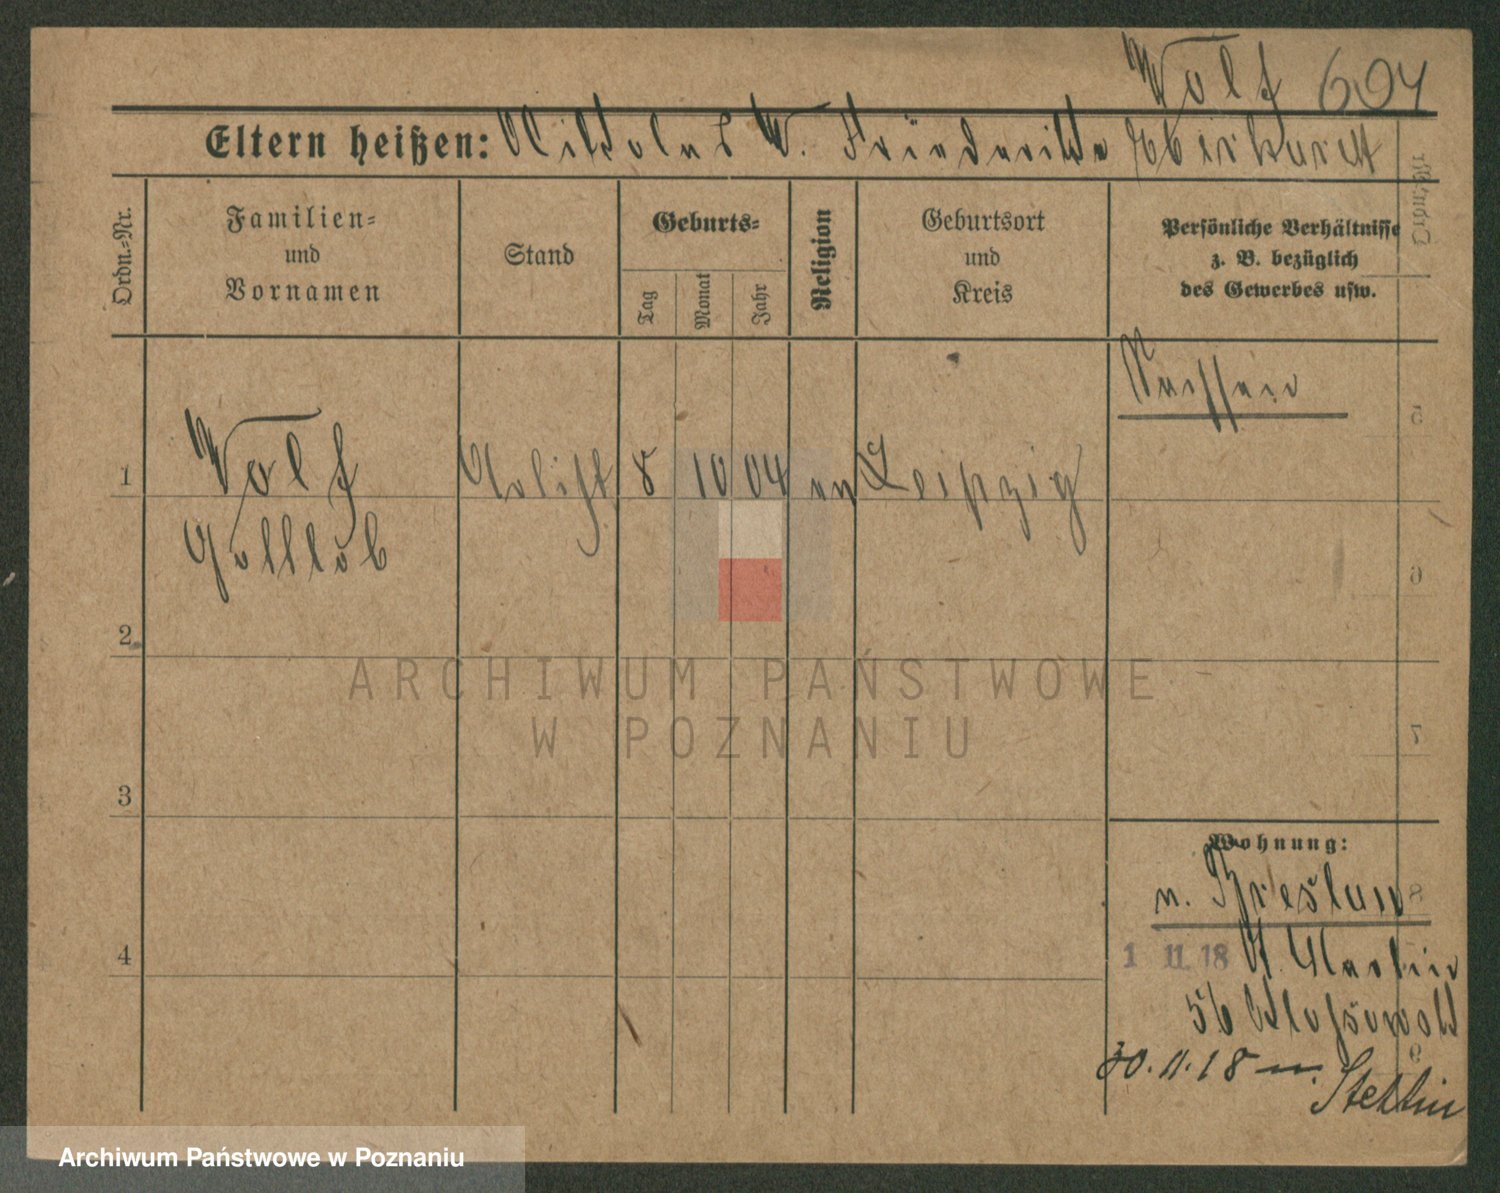 Wolf 604
Eltern heißen: Nikolaus W. Friederike
Ordn.-Nr.
Familien-
und
Vornamen
Stand
Geburts-
Tag
Monat
Jahr
Religion
Geburtsort
und
Kreis
Persönliche Verhältnisse
z. B. bezüglich
des Gewerbes usw.
Sachsen
1
Wolf
Gottlob
8 10 04 ev Leipzig
2
3
4
Wohnung:
n. Breslau
1 11 18 St. Martin
56
30.11.18 n. Stettin
ARCHIWUM PAŃSTWOWE
W POZNANIU
Archiwum Państwowe w Poznaniu